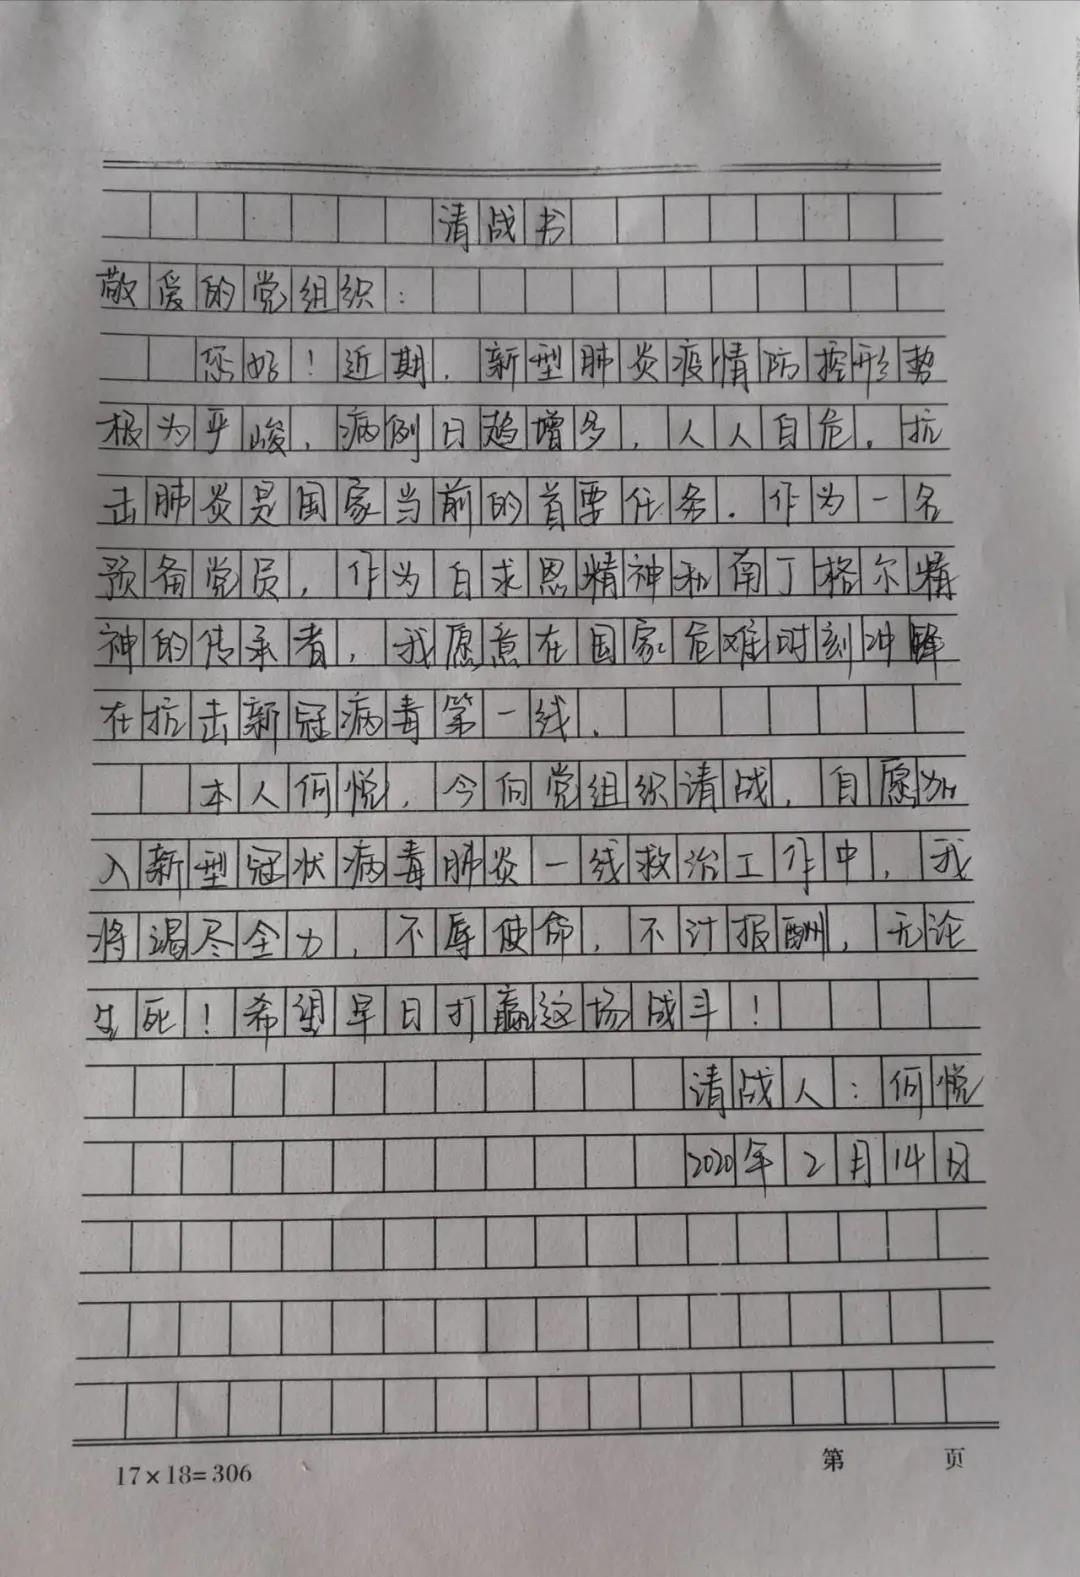 请战书
敬爱的党组织：
您好！近期，新型肺炎疫情防控形势
极为严峻，病例日趋增多，人人自危。抗
击肺炎是国家当前的首要任务。作为一名
预备党员，作为白求恩精神和南丁格尔精
神的传承者，我愿意在国家危难时刻冲锋
在抗击新冠病毒第一线。
本人何悦，今向党组织请战，自愿加
入新型冠状病毒肺炎一线救治工作中，我
将竭尽全力，不辱使命，不计报酬，无论
生死！希望早日打赢这场战斗！
请战人：何悦
2020年2月14日
17×18=306 第 页